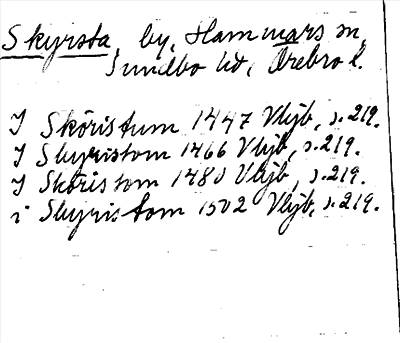 Skyrsta, by, Hammars sn,
Sundbo hd, Örebro l.
I Sköristum 1447 Vlijb, s. 219.
I Skyristom 1466 Vlijb, s. 219.
I Sköris tom 1480 Vlijb, s. 219.
i Skyris tom 1502 Vlijb, s. 219.